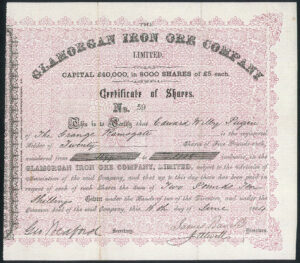 THE
GLAMORGAN IRON ORE COMPANY
LIMITED.
CAPITAL £40,000, in 8000 SHARES of £5 each.
Certificate of Shares.
No. 59
This is to Certify that Edward Welby Pugin
of The Grange Ramsgate is the registered
Holder of Twenty Shares of Five Pounds each,
numbered from to inclusive, in the
GLAMORGAN IRON ORE COMPANY, LIMITED, subject to the
regulations of the said Company, and that up to this day there has been paid in
respect of each of such Shares the Sum of Two Pounds Ten
Shillings
Given under the Common Seal of the
said Company, this 16th day of June
Secretary. Directors.